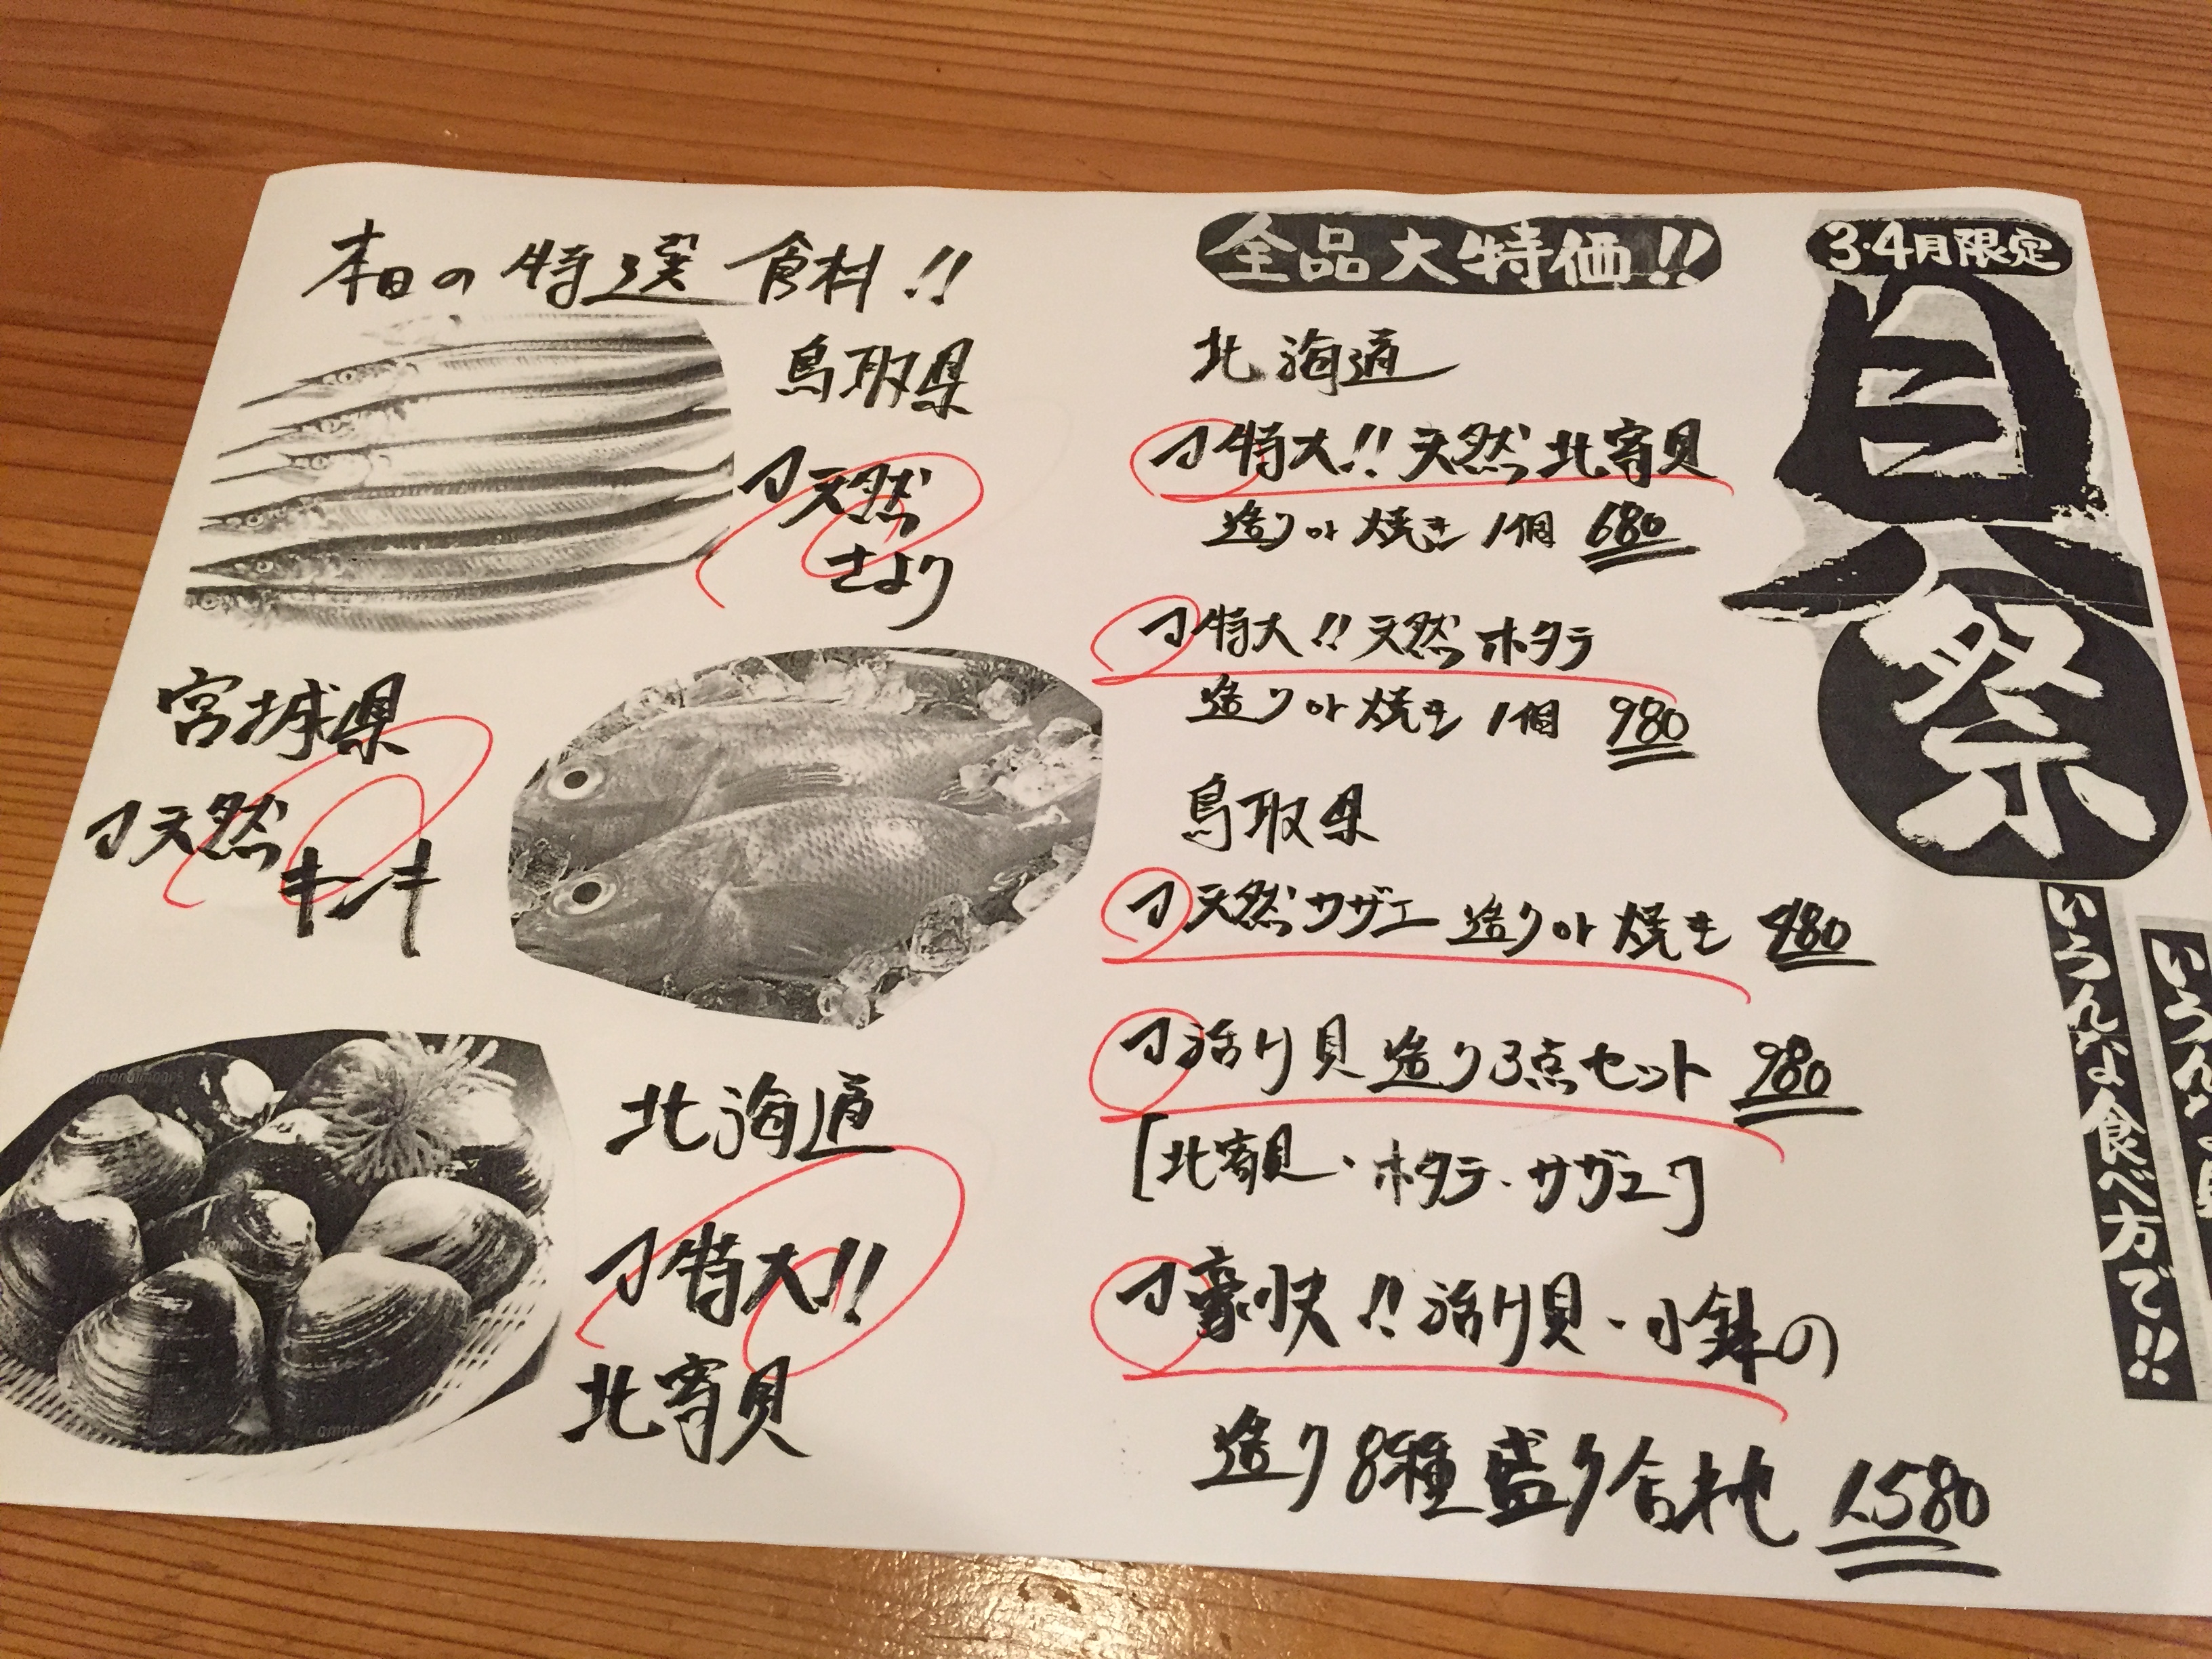 本日の特選食料!!
鳥取県
天然
さより
宮城県
天然
キンキ
北海道
特大!!
北寄貝
3・4月限定
貝祭
いろんな食べ方で!!
全品大特価!!
北海道
特大!!天然北寄貝
造りor焼き 1個 680
特大!!天然ホタテ
造りor焼き 1個 980
鳥取県
天然サザエ 造りor焼き 480
活け貝造り3点セット 980
[北寄貝・ホタテ・サザエ]
豪快!!活け貝・小鉢の
造り8種盛り合わせ 1,580